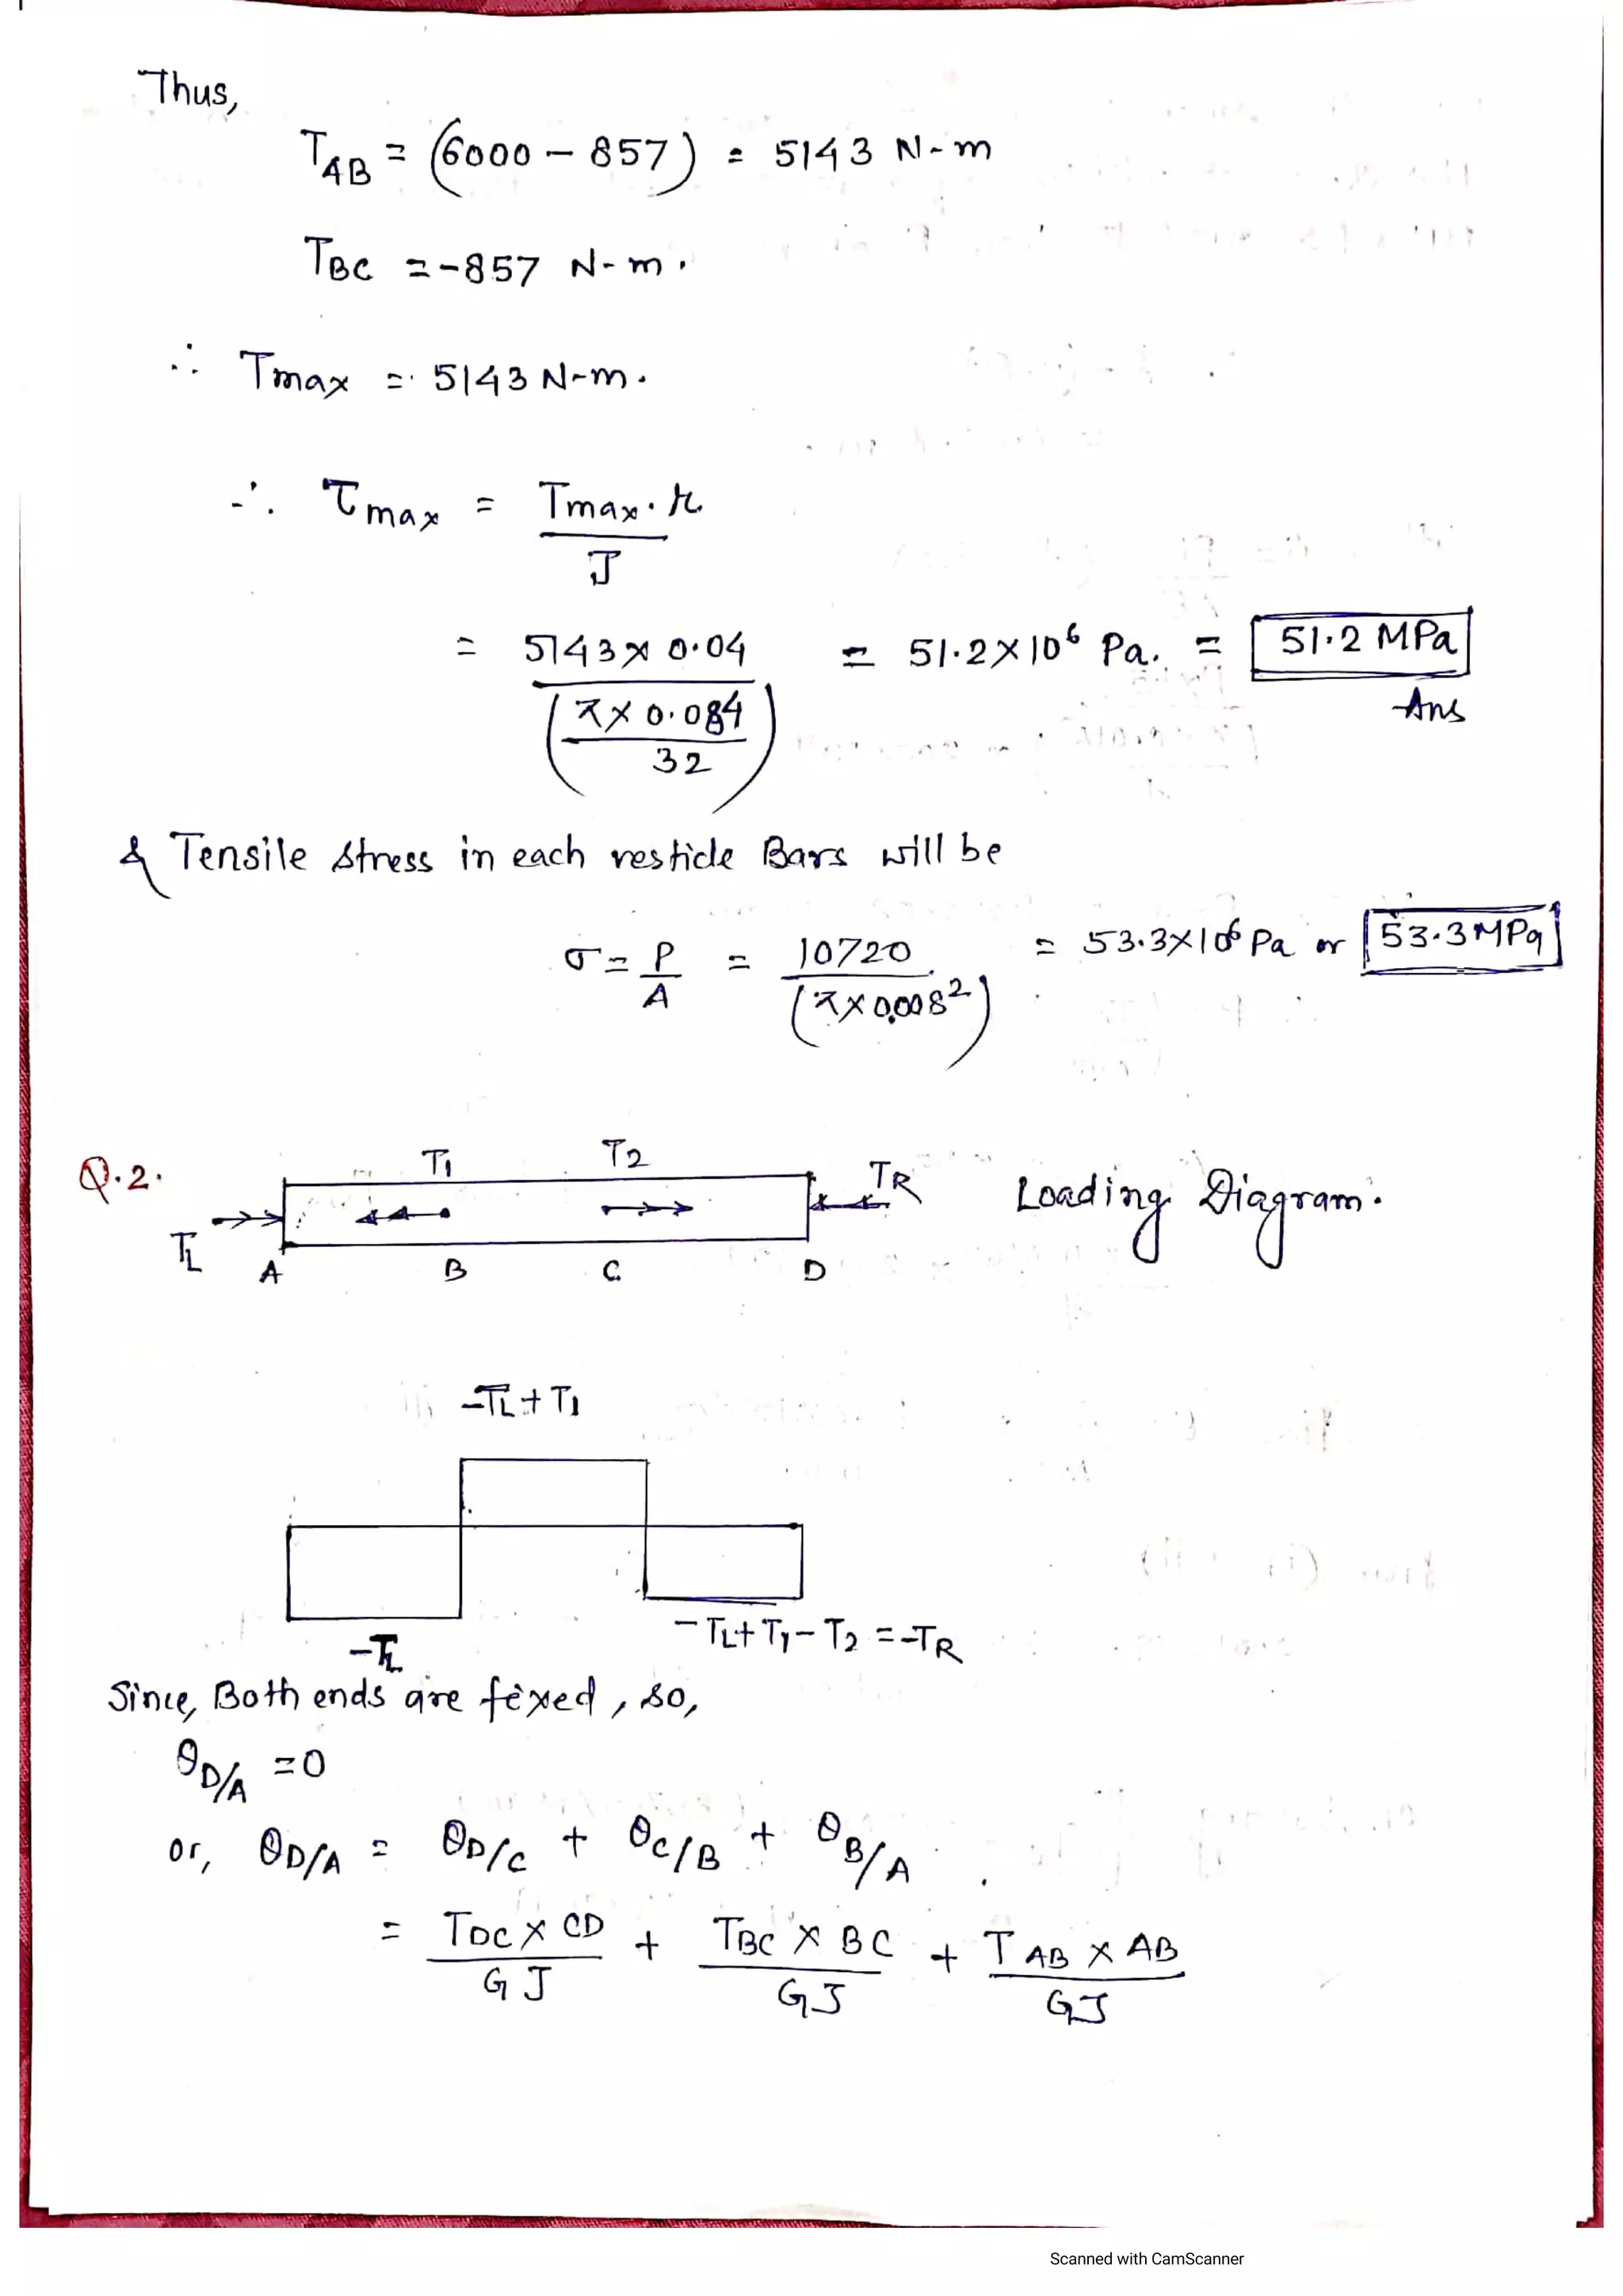 Thus,
T_AB = (6000 - 857) = 5143 N-m
T_BC = -857 N-m.
∴ Tmax = 5143 N-m.
∴ τmax = Tmax. r / J
= 5143 × 0.04 / (π × 0.084 / 32) = 51.2 × 10^6 Pa. = 51.2 MPa
Ans
& Tensile stress in each Bars will be
σ = P/A = 10720 / (π × 0.008^2) = 53.3 × 10^6 Pa or 53.3 MPa
Q.2. T1 T2 TR Loading Diagram.
TL A B C D
-TL + T1
-TL
-TL + T1 - T2 = -TR
Since, Both ends are fixed, so,
θD/A = 0
or, θD/A = θD/C + θC/B + θB/A .
= TDC × CD / GJ + TBC × BC / GJ + TAB × AB / GJ
Scanned with CamScanner